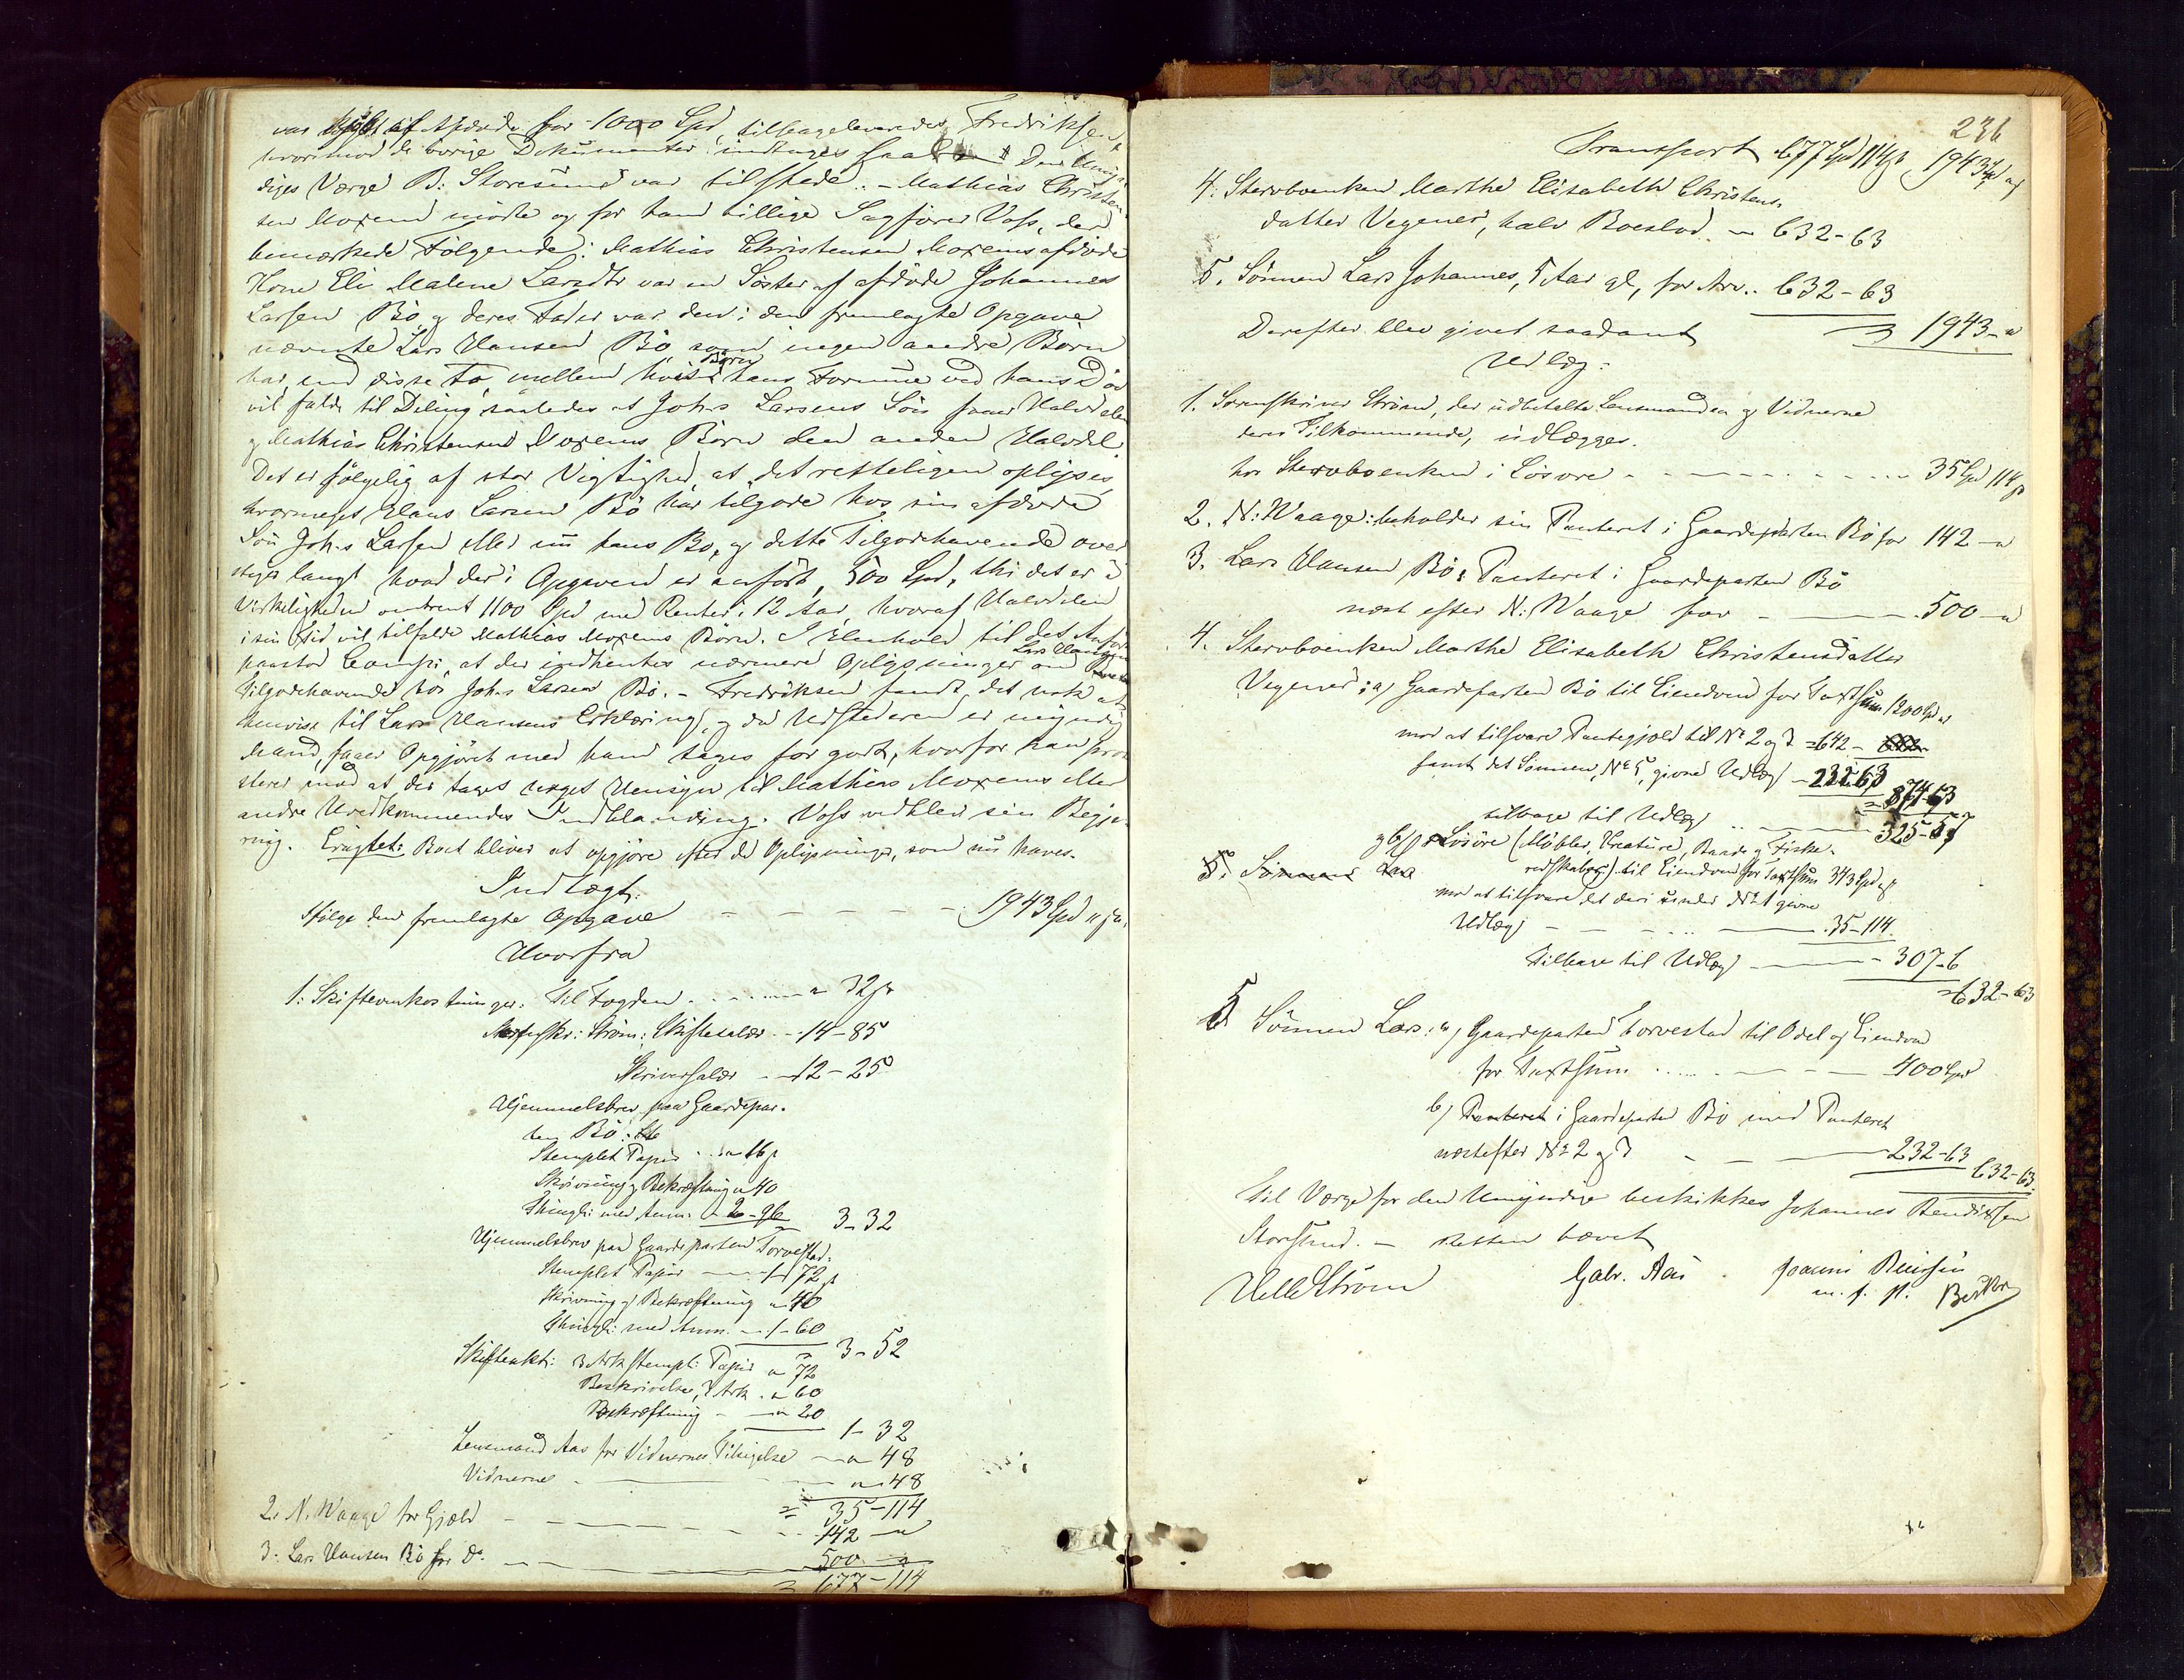 var kjøbt af Afdøde for 1000 Spd, tilbageleveredes Fredriksen,
hvorimod de øvrige Dokumenter indtages saal. Den Umyn-
diges Værge B. Storesund var tilstede. – Mathias Christen-
sen Moxem mødte og for ham tillige Sagfører Voss, der
bemærkede Følgende: Mathias Christensen Moxems afdøde
Kone Eli Malene Larsdtr var en Søster af afdøde Johannes
Larsen Bø og deres Fader var den i den fremlagte Opgave
nævnte Lars Hansen Bø, som ingen andre Børn
har, end disse to, mellem hvis Børn hans Formue ved hans Død
vil falde til Deling saaledes at Johs Larsens Søn faaer Halvdelen
og Mathias Christensens Moxems Børn den anden Halvdel.
Det er følgelig af stor Vigtighed, at det retteligen oplyses,
hvormeget Hans Larsen Bø har tilgode hos sin afdøde
Søn Johs Larsen eller nu hans Bo, og dette Tilgodehavende over
stiger langt hvad der i Opgaven er anført, 500 Spd, thi det er i
Virkeligheden omtrent 1100 Spd med Renter i 12 Aar, hvoraf Halvdelen
i sin Tid vil tilfalde Mathias Moxems Børn. I Henhold til det Anførte
paastod Comp. at der indhentes nærmere Oplysninger om Lars Hansens
Tilgodehavende hos Johs Larsen Bø. – Fredriksen fandt det nok at
henvise til Lars Hansens Erklæring, og da Udstederen er myndig
Mand, faaer Opgjøret med ham tages for godt, hvorfor han pro-
sterer mod at der tages noget Hensyn til Mathias Moxems eller
andre Uvedkommendes Indblanding. Voss vedblev sin Begjæ-
ring. Eragtet: Boet bliver at opgjøre efter de Oplysninger, som nu haves.
Indtægt:
Ifølge den fremlagte Opgave – – – – – 1943 Spd " s.
Hvorfra
1. Skifteomkostninger. Til Fogden . . . . . " 32 s
Sorenskr: Strøm: Skiftesalær – 14 – 85
Skriversalær – 12 – 25
Hjemmelsbrev paa Gaardepar-
ten Bø:
Stemplet Papir . . . " 16 s
Skrivning og Bekræftning " 40
Thingl: med Anm: 2 – 96 3 – 32
Hjemmelsbrev paa Gaardeparten Torvestad:
Stemplet Papir – 1 – 72 s
Skrivning og Bekræftning " 40
Thingl: med Anm. – 1 – 60
3 – 52
Skifteakt: 3 Ark stempl: Papir " 72
Beskrivelse, 3 Ark . " 60
Bekræftning – " 20
1 – 32
Lensmand Aas for Vidnernes Tilsigelse – " 48
Vidnerne – " 48
= 35 – 114
2. N. Waage for Gjæld – – – – 142 – "
3. Lars Hansen Bø for Do. – – 500 – "
= 677 – 114
236
Transport 677 Spd 114 s 1943 Spd " s
4. Stervboenken Marthe Elisabeth Christens-
datter Vegenes, halv Boeslod – " 632 – 63
5. Sønnen Lars Johannes, 5 Aar gl, for Arv . . 632 – 63
= 1943 – "
Derefter blev givet saadant
Udlæg:
1. Sorenskriver Strøm, der udbetalte Lensmanden og Vidnerne
deres Tilkommende, udlægges
hos Stervboenken i Løsøre – – – – – 35 Spd 114 s
2. N: Waage: beholder sin Panteret i Gaardeparten Bø for 142 – "
3. Lars Hansen Bø: Panteret i Gaardeparten Bø
næst efter N: Waage for – – 500 – "
4. Stervboenken Marthe Elisabeth Christensdatter
Vegenes: a) Gaardeparten Bø til Eiendom for Taxtsum 1200 Spd "
mod at tilsvare Pantegjæld til No 2 og 3 = 642 –
samt det Sønnen, No 5, givne Udlæg – 232 – 63
= 874 – 63
tilbage til Udlæg . . – 325 – 57
og b) Løsøre (Møbler, Kreature, Baade og Fiske-
redskaber) til Eiendom for Taxtsum 343 Spd " s
5. Sønnen Lars
mod at tilsvare det deri under No 1 givne
Udlæg – – – – 35 – 114
Tilbage til Udlæg – 307 – 6
= 632 – 63
5 Sønnen Lars: a) Gaardeparten Torvestad til Odel og Eiendom
for Taxtsum . . . . . – – – 400 Spd
b) Panteret i Gaardeparten Bø med Panteret
næstefter No 2 og 3 – – – 232 – 63
632 – 63
Til Værge for den Umyndige beskikkes Johannes Bendixsen
Storesund. – Retten hævet
Strøm Gabr. Aas .
m. f. P.